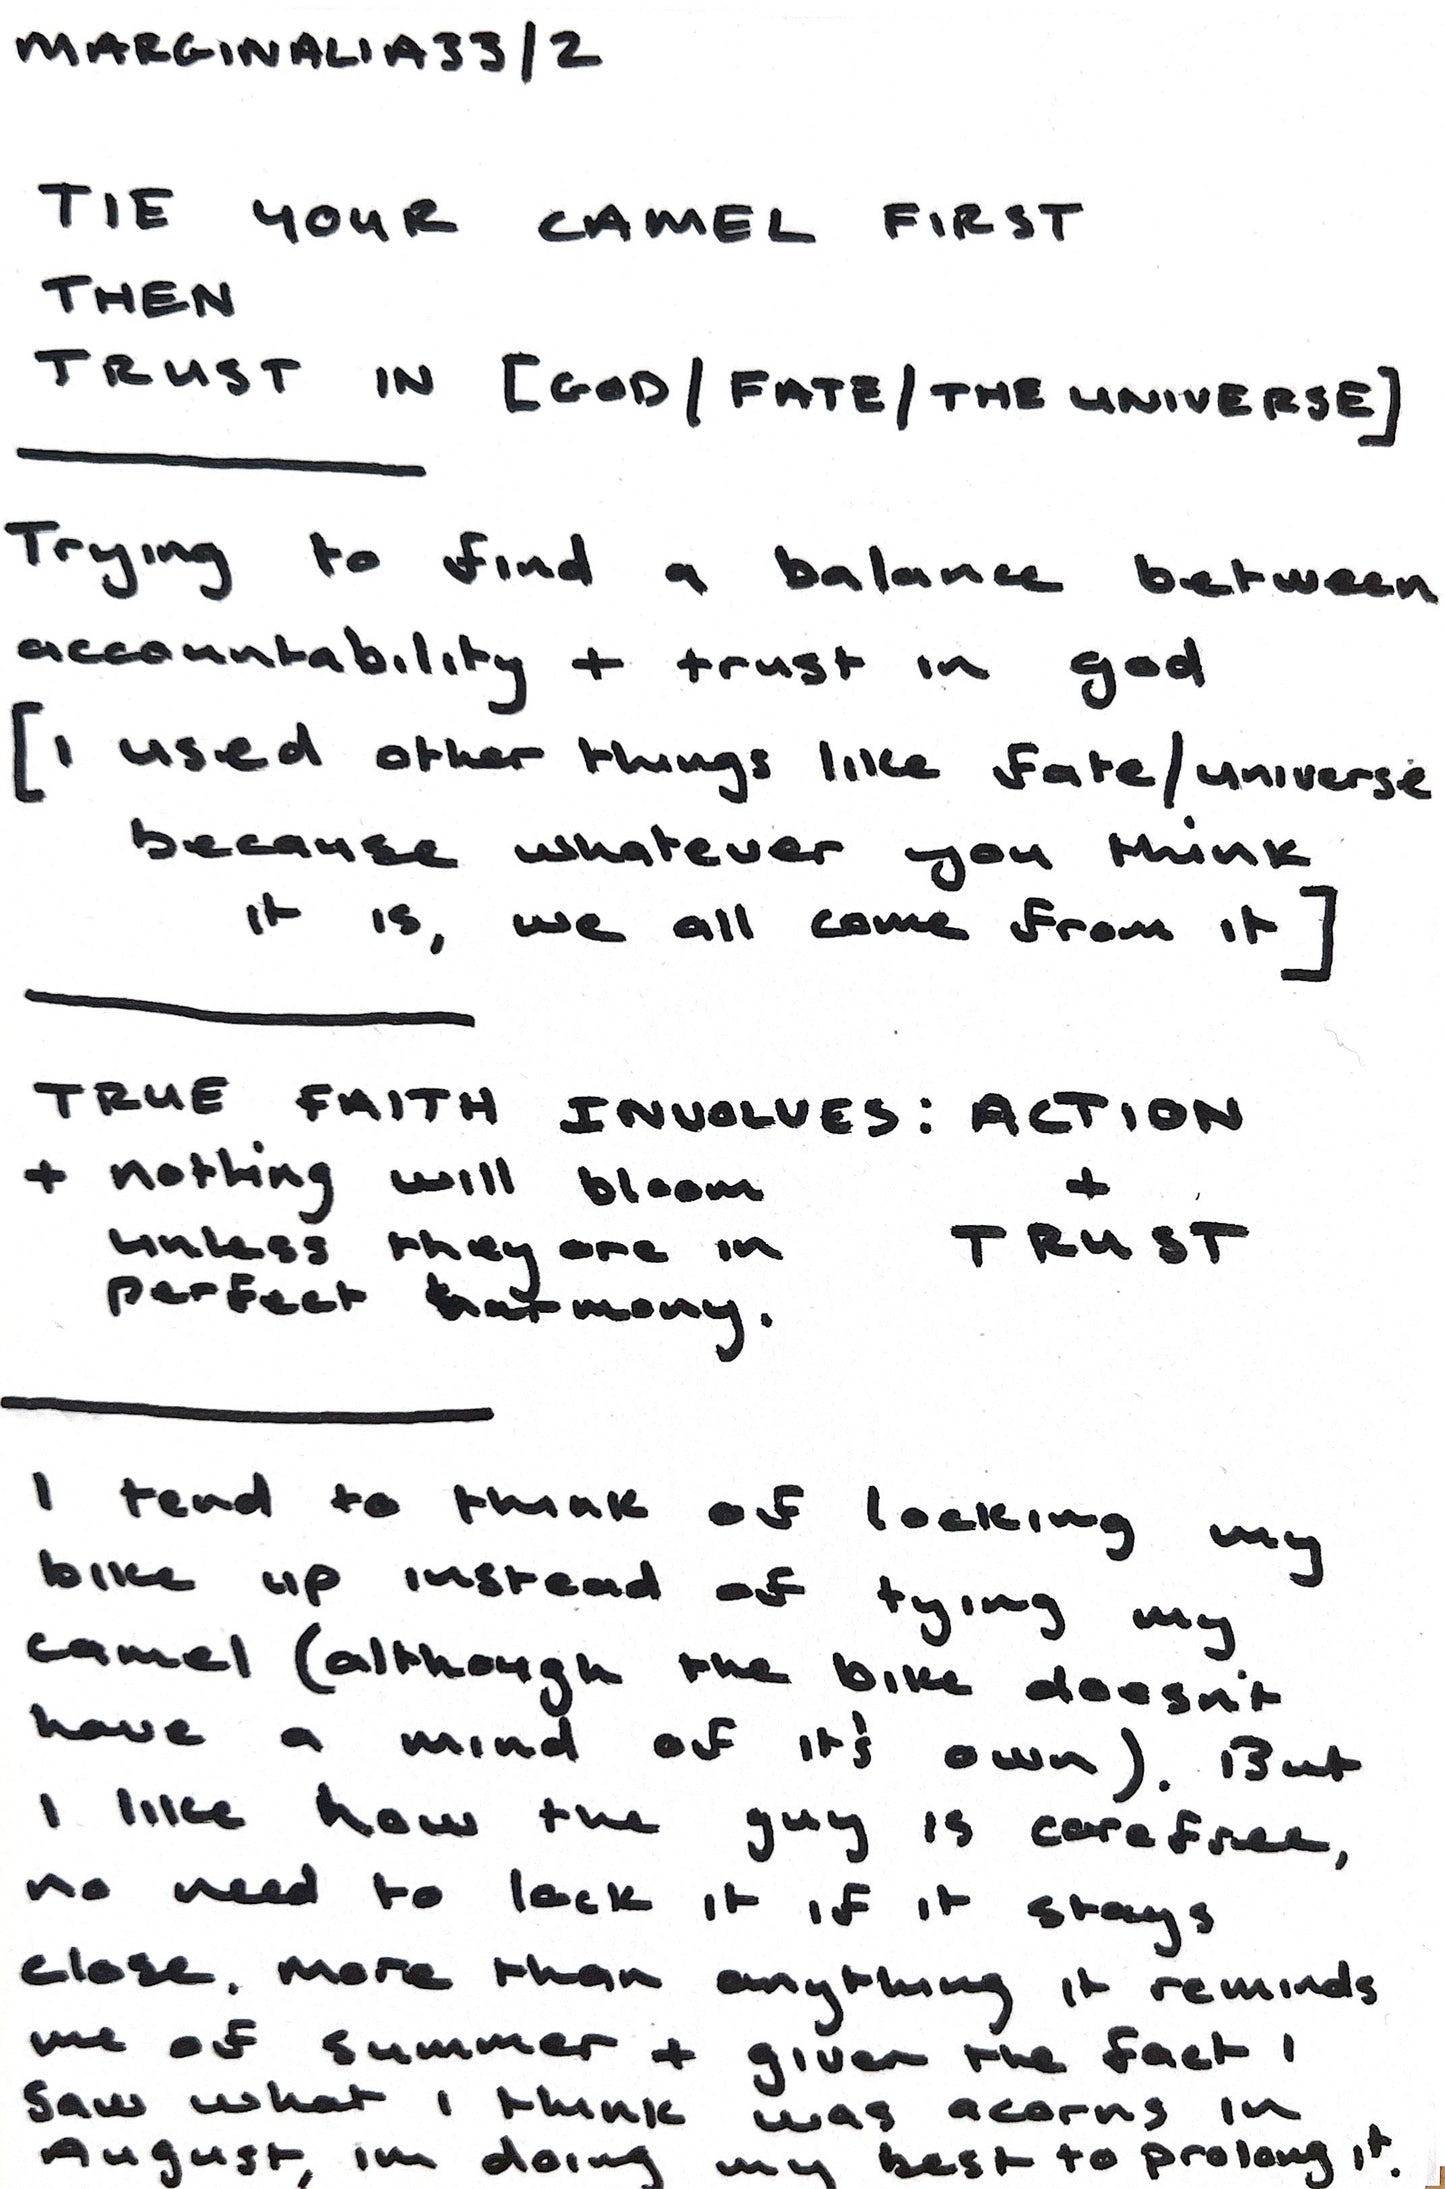 MARGINALIA33/2
TIE YOUR CAMEL FIRST
THEN
TRUST IN [GOD/FATE/THE UNIVERSE]
Trying to find a balance between
accountability + trust in god
[I used other things like fate/universe
because whatever you think
it is, we all come from it]
TRUE FAITH INVOLVES: ACTION
+ nothing will bloom +
unless they are in TRUST
perfect harmony.
I tend to think of locking my
bike up instead of tying my
camel (although the bike doesn't
have a mind of it's own). But
I like how the guy is carefree,
no need to lock it if it stays
close. more than anything it reminds
me of summer + given the fact I
saw what I think was acorns in
August, im doing my best to prolong it.